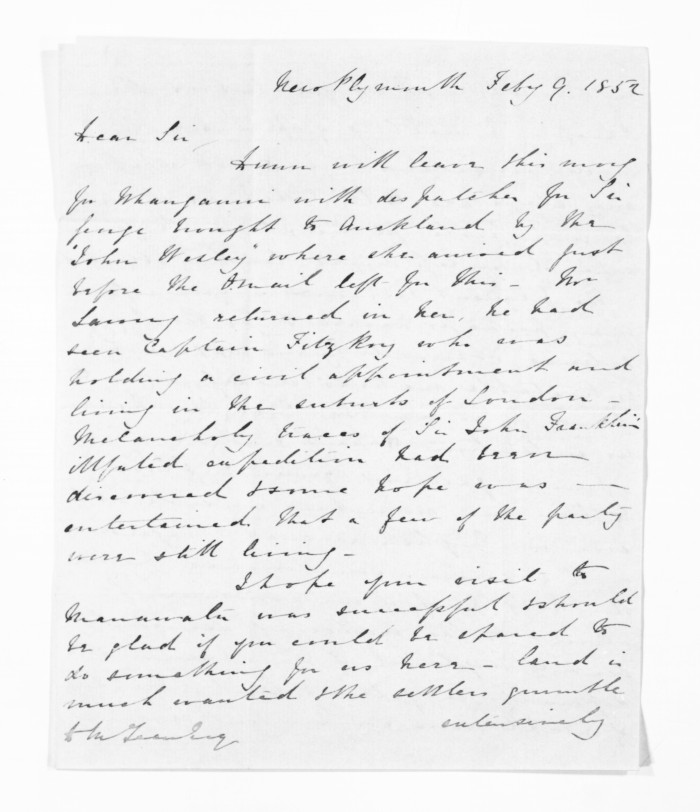 New Plymouth Feby 9. 1852
Dear Sir
will leave this morng
for Whanganui with despatches for Sir
George brought to Auckland by the
"John Wesley" where she arrived just
before the Omail left for this - Mr
returned in her, he had
seen Captain FitzRoy who was
holding a civil appointment and
living in the suburbs of London -
Melancholy traces of Sir John Franklin's
illfated expedition had been
discovered & some hope was —
entertained that a few of the party
were still living -
I hope your visit to
Manawatu was successful & should
be glad if you could be spared to
do something for us here - land is
much wanted & the settlers grumble
extensively
McLean Esq